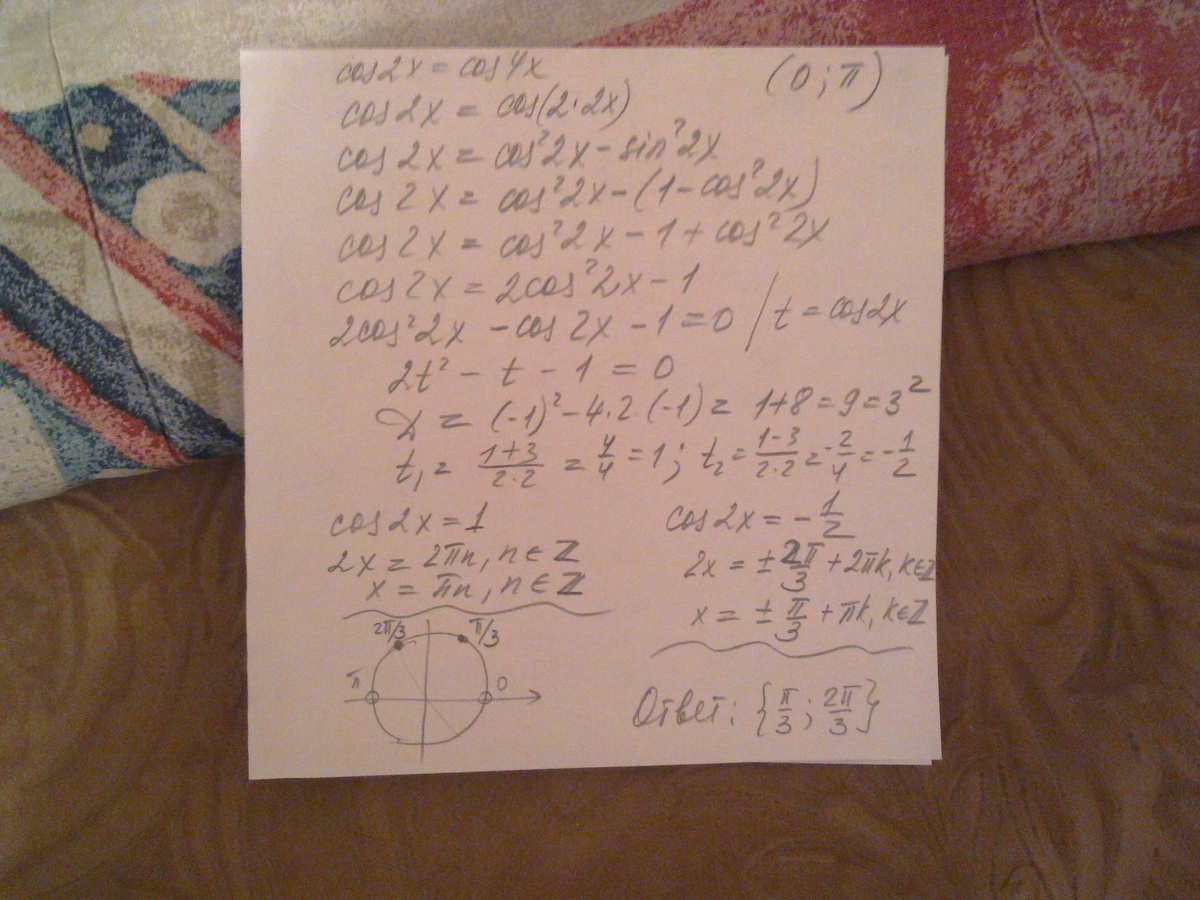 cos2x = cos4x (0; π)
cos2x = cos(2·2x)
cos2x = cos²2x - sin²2x
cos2x = cos²2x - (1 - cos²2x)
cos2x = cos²2x - 1 + cos²2x
cos2x = 2cos²2x - 1
2cos²2x - cos2x - 1 = 0 / t = cos2x
2t² - t - 1 = 0
D = (-1)² - 4·2·(-1) = 1+8 = 9 = 3²
t₁ = (1+3)/(2·2) = 4/4 = 1; t₂ = (1-3)/(2·2) = -2/4 = -1/2
cos2x = 1
2x = 2πn, n∈Z
x = πn, n∈Z
cos2x = -1/2
2x = ± 2π/3 + 2πk, k∈Z
x = ± π/3 + πk, k∈Z
2π/3 π/3
π 0
Ответ: {π/3; 2π/3}